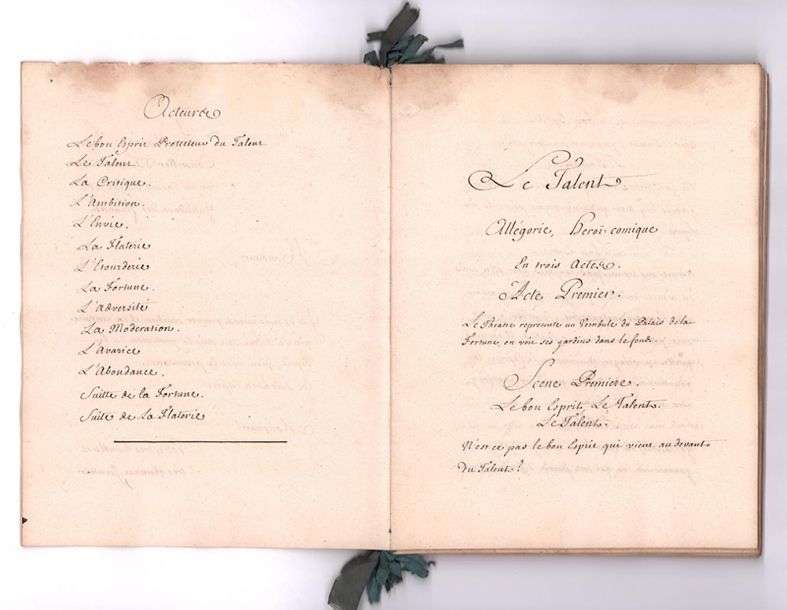 Acteurs
Le bon Esprit Protecteur du Talent
Le Talent
La Critique.
L'Ambition.
L'Envie.
La Flaterie
L'Etourderie
La Fortune.
L'Adversité
La Moderation.
L'Avarice
L'Abondance.
Suitte de la Fortune.
Suite de La Flaterie
Le Talent
Allégorie, heroi-comique
En trois Actes.
Acte Premier.
Le Théatre represente un Vestibule du Palais de la
Fortune, on voit ses jardins dans le fond.
Scene Premiere.
Le bon Esprit, Le Talent.
Le Talent.
N'est ce pas le bon Esprit qui vient au devant
du Talent?